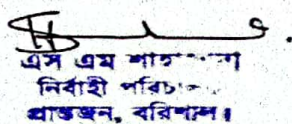 এস এম শাহ
নির্বাহী পরিচ
প্রান্তজন, বরিশাল।